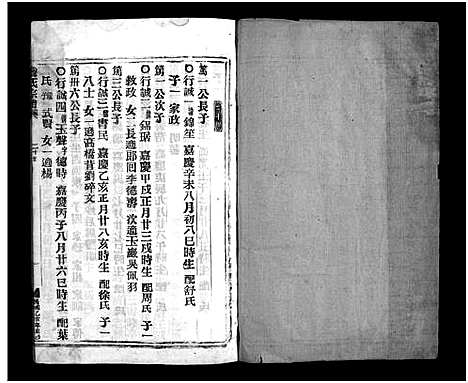 篤一公長子
行誠一 錦笙 嘉慶辛未八月初八巳時生 配舒氏
子一 家政
篤一公次子
行誠二 錫琚 嘉慶甲戌正月廿三戌時生 配周氏 子一
敎政 女二 長適郎回李德壽 次適玉巖吳佩羽
篤一公長子
行誠三 書民 嘉慶乙亥正月廿八亥時生 配徐氏 子一
八士 女一 適高橋昔劉碎文
篤卅六公長子
行誠四 玉聲 德時 嘉慶丙子八月廿六巳時生 配葉
氏 式賢 女一 適楊